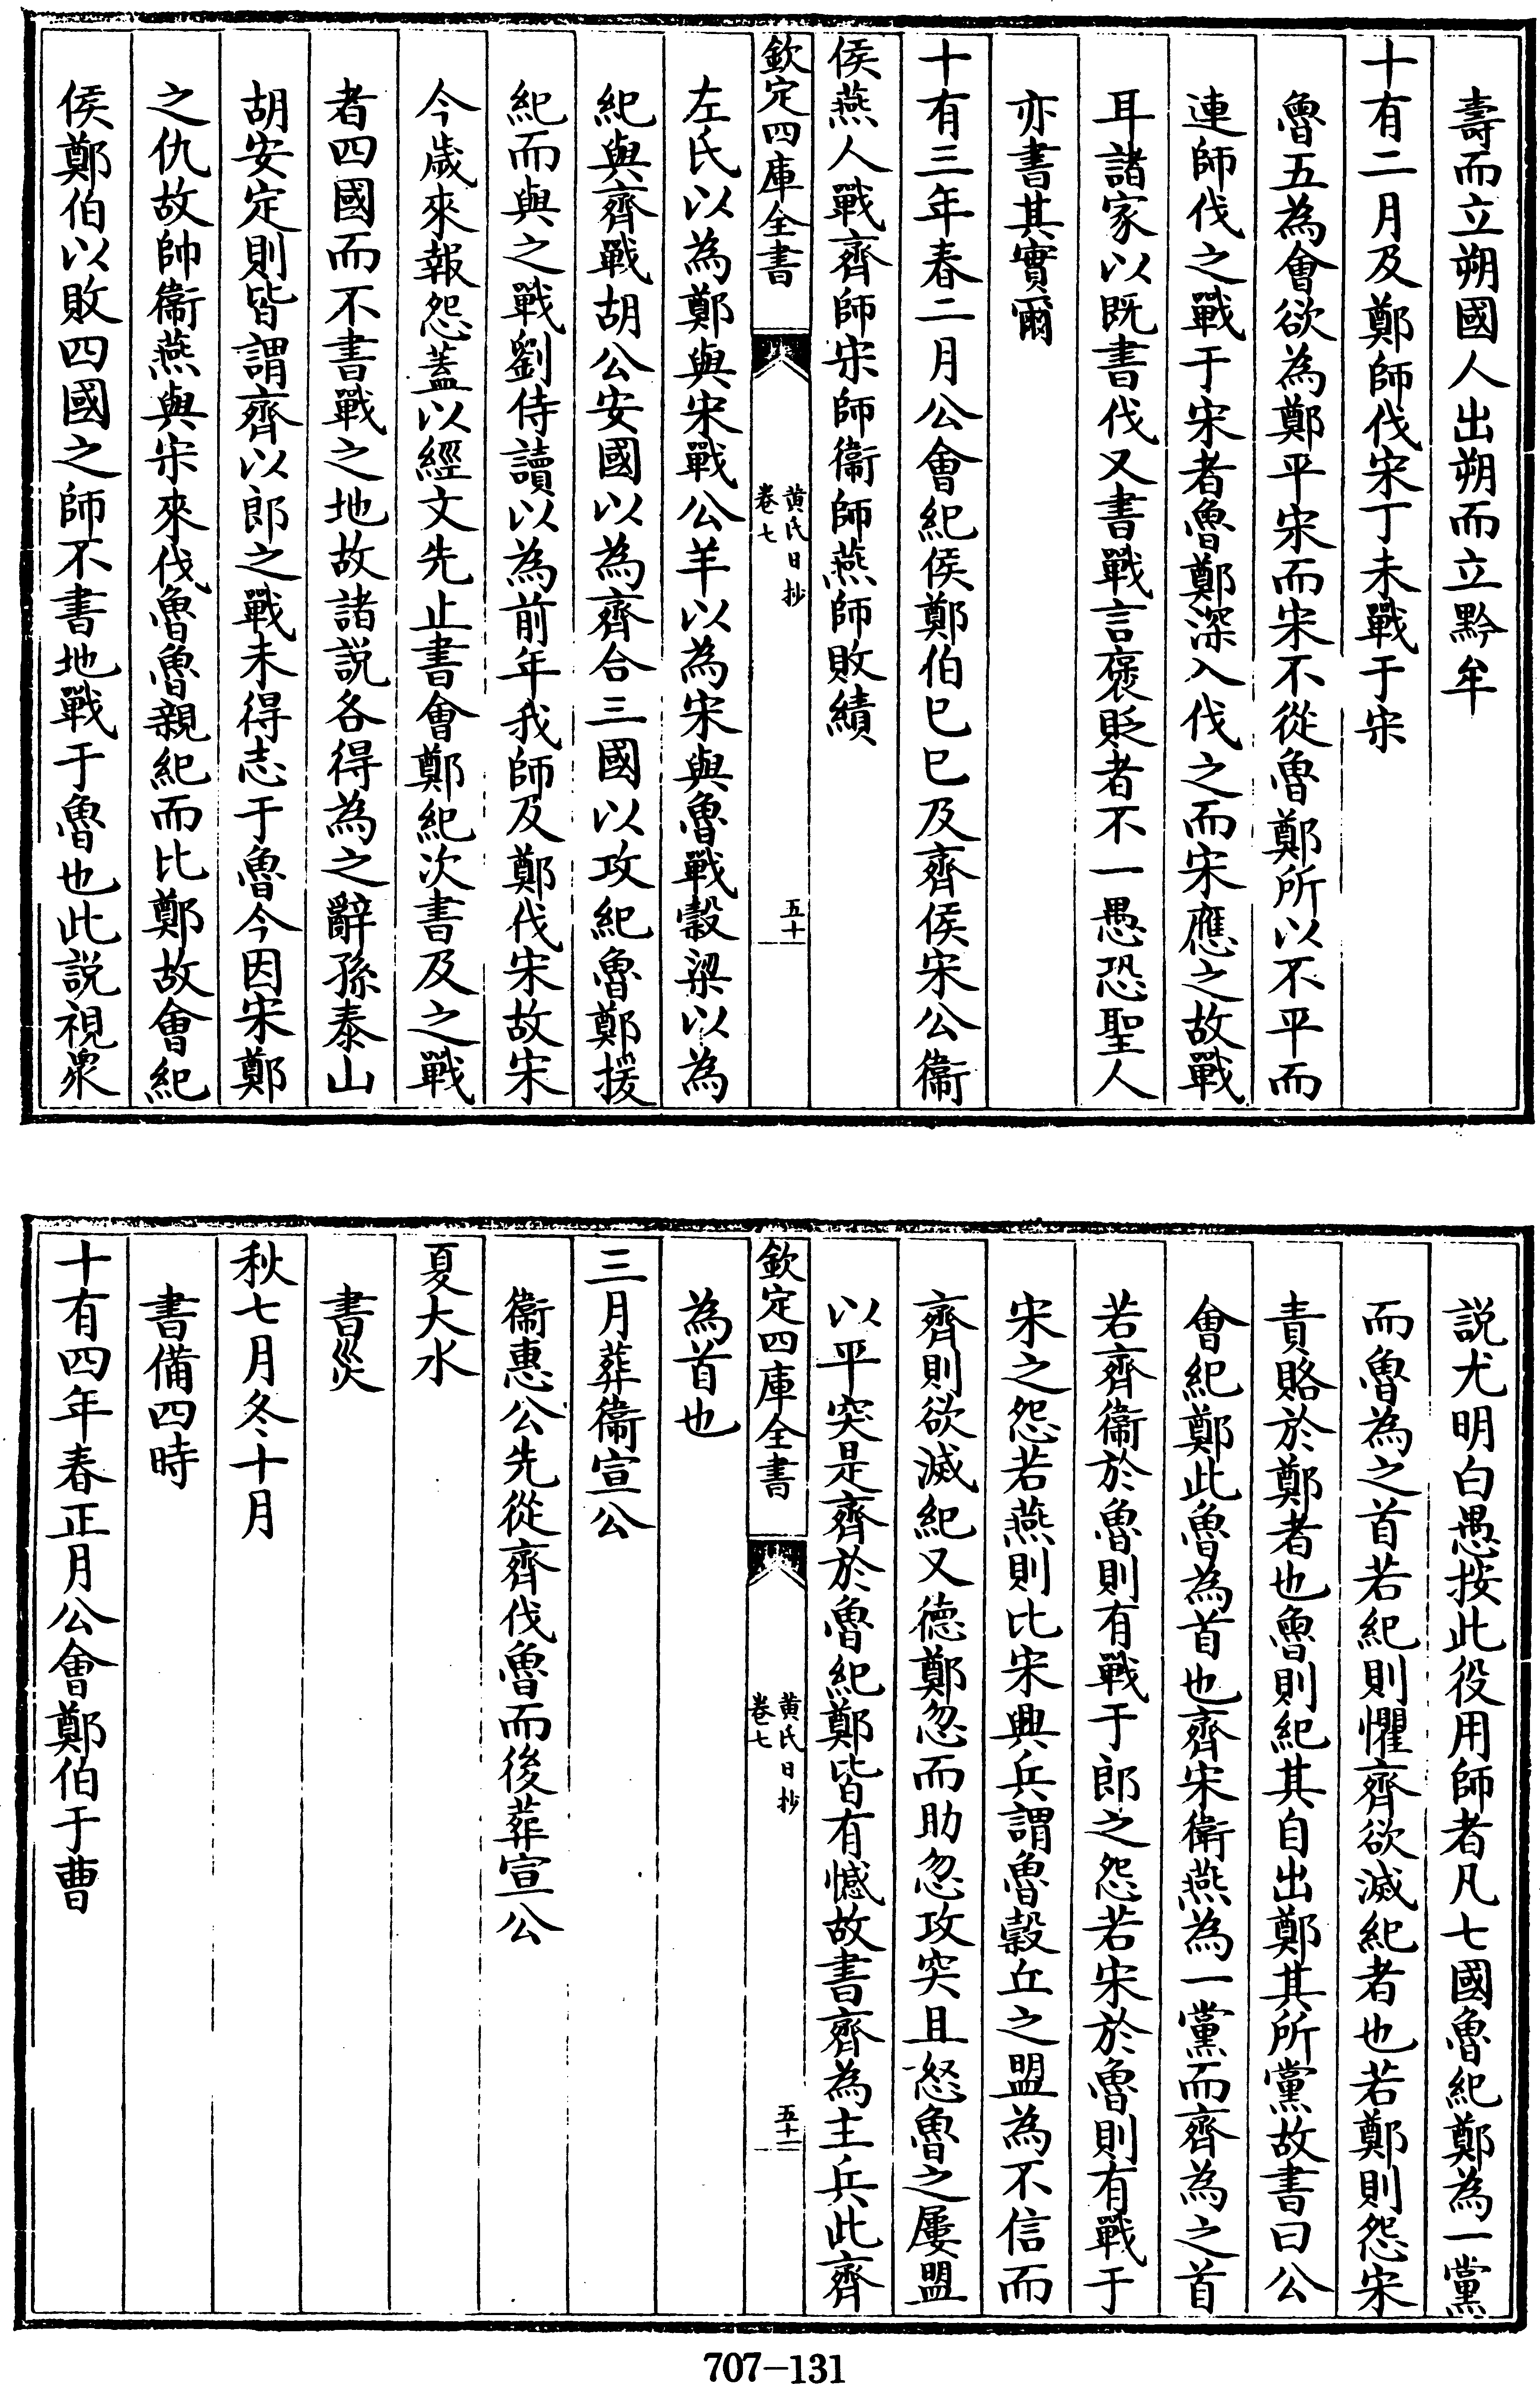 壽而立朔國人出朔而立黔牟
十有二月及鄭師伐宋丁未戰于宋
魯五為會欲為鄭平宋而宋不從魯鄭所以不平而
連師伐之戰于宋者魯鄭深入伐之而宋應之故戰
耳諸家以既書伐又書戰言褒貶者不一愚恐聖人
亦書其實爾
十有三年春二月公會紀侯鄭伯巳巳及齊侯宋公衞
侯燕人戰齊師宋師衞師燕師敗績
欽定四庫全書
黃氏日抄
卷七
五十
左氏以為鄭與宋戰公羊以為宋與魯戰穀梁以為
紀與齊戰胡公安國以為齊合三國以攻紀魯鄭援
紀而與之戰劉侍讀以為前年我師及鄭伐宋故宋
今歲來報怨蓋以經文先止書會鄭紀次書及之戰
者四國而不書戰之地故諸説各得為之辭孫泰山
胡安定則皆謂齊以郎之戰未得志于魯今因宋鄭
之仇故帥衞燕與宋來伐魯魯親紀而比鄭故會紀
侯鄭伯以敗四國之師不書地戰于魯也此説視眾
説尤明白愚按此役用師者凡七國魯紀鄭為一黨
而魯為之首若紀則懼齊欲滅紀者也若鄭則怨宋
責賂於鄭者也魯則紀其自出鄭其所黨故書曰公
會紀鄭此魯為首也齊宋衛燕為一黨而齊為之首
若齊衞於魯則有戰于郎之怨若宋於魯則有戰于
宋之怨若燕則比宋興兵謂魯穀丘之盟為不信而
齊則欲滅紀又德鄭忽而助忽攻突且怒魯之屢盟
以平突是齊於魯紀鄭皆有憾故書齊為主兵此齊
欽定四庫全書
黃氏日抄
卷七
五十一
為首也
三月葬衞宣公
衞惠公先從齊伐魯而後葬宣公
夏大水
書災
秋七月冬十月
書備四時
十有四年春正月公會鄭伯于曹
707-131